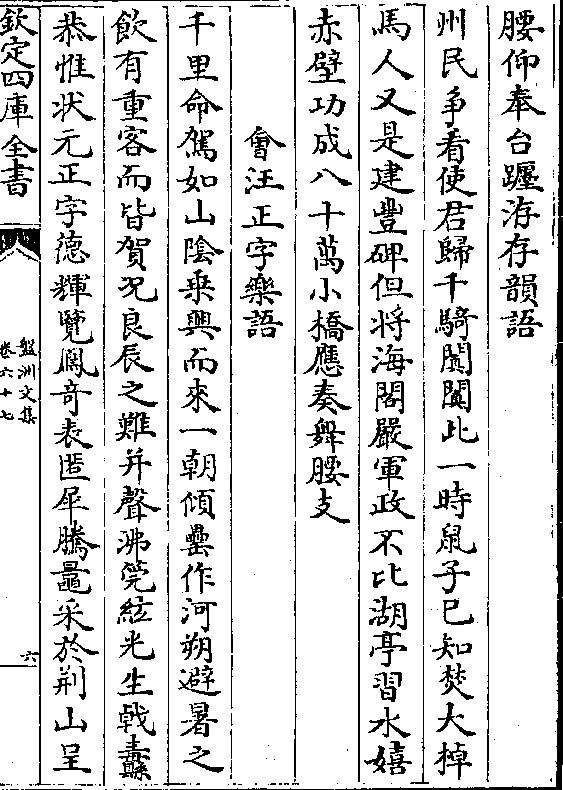 腰仰奉台躔洊存韻語
州民争看使君歸千騎闐闐此一時鼠子已知焚大棹
馬人又是建豐碑但将海閣嚴軍政不比湖亭習水嬉
赤壁功成八十萬小橋應奏舞腰支
會汪正字樂語
千里命駕如山陰乗興而來一朝傾罍作河朔避暑之
飲有重客而皆賀况良辰之難并聲沸筦絃光生戟纛
恭惟状元正字德輝覽鳳竒表匿犀騰鼂采於荆山呈
欽定四庫全書
盤洲文集
卷六十七
六